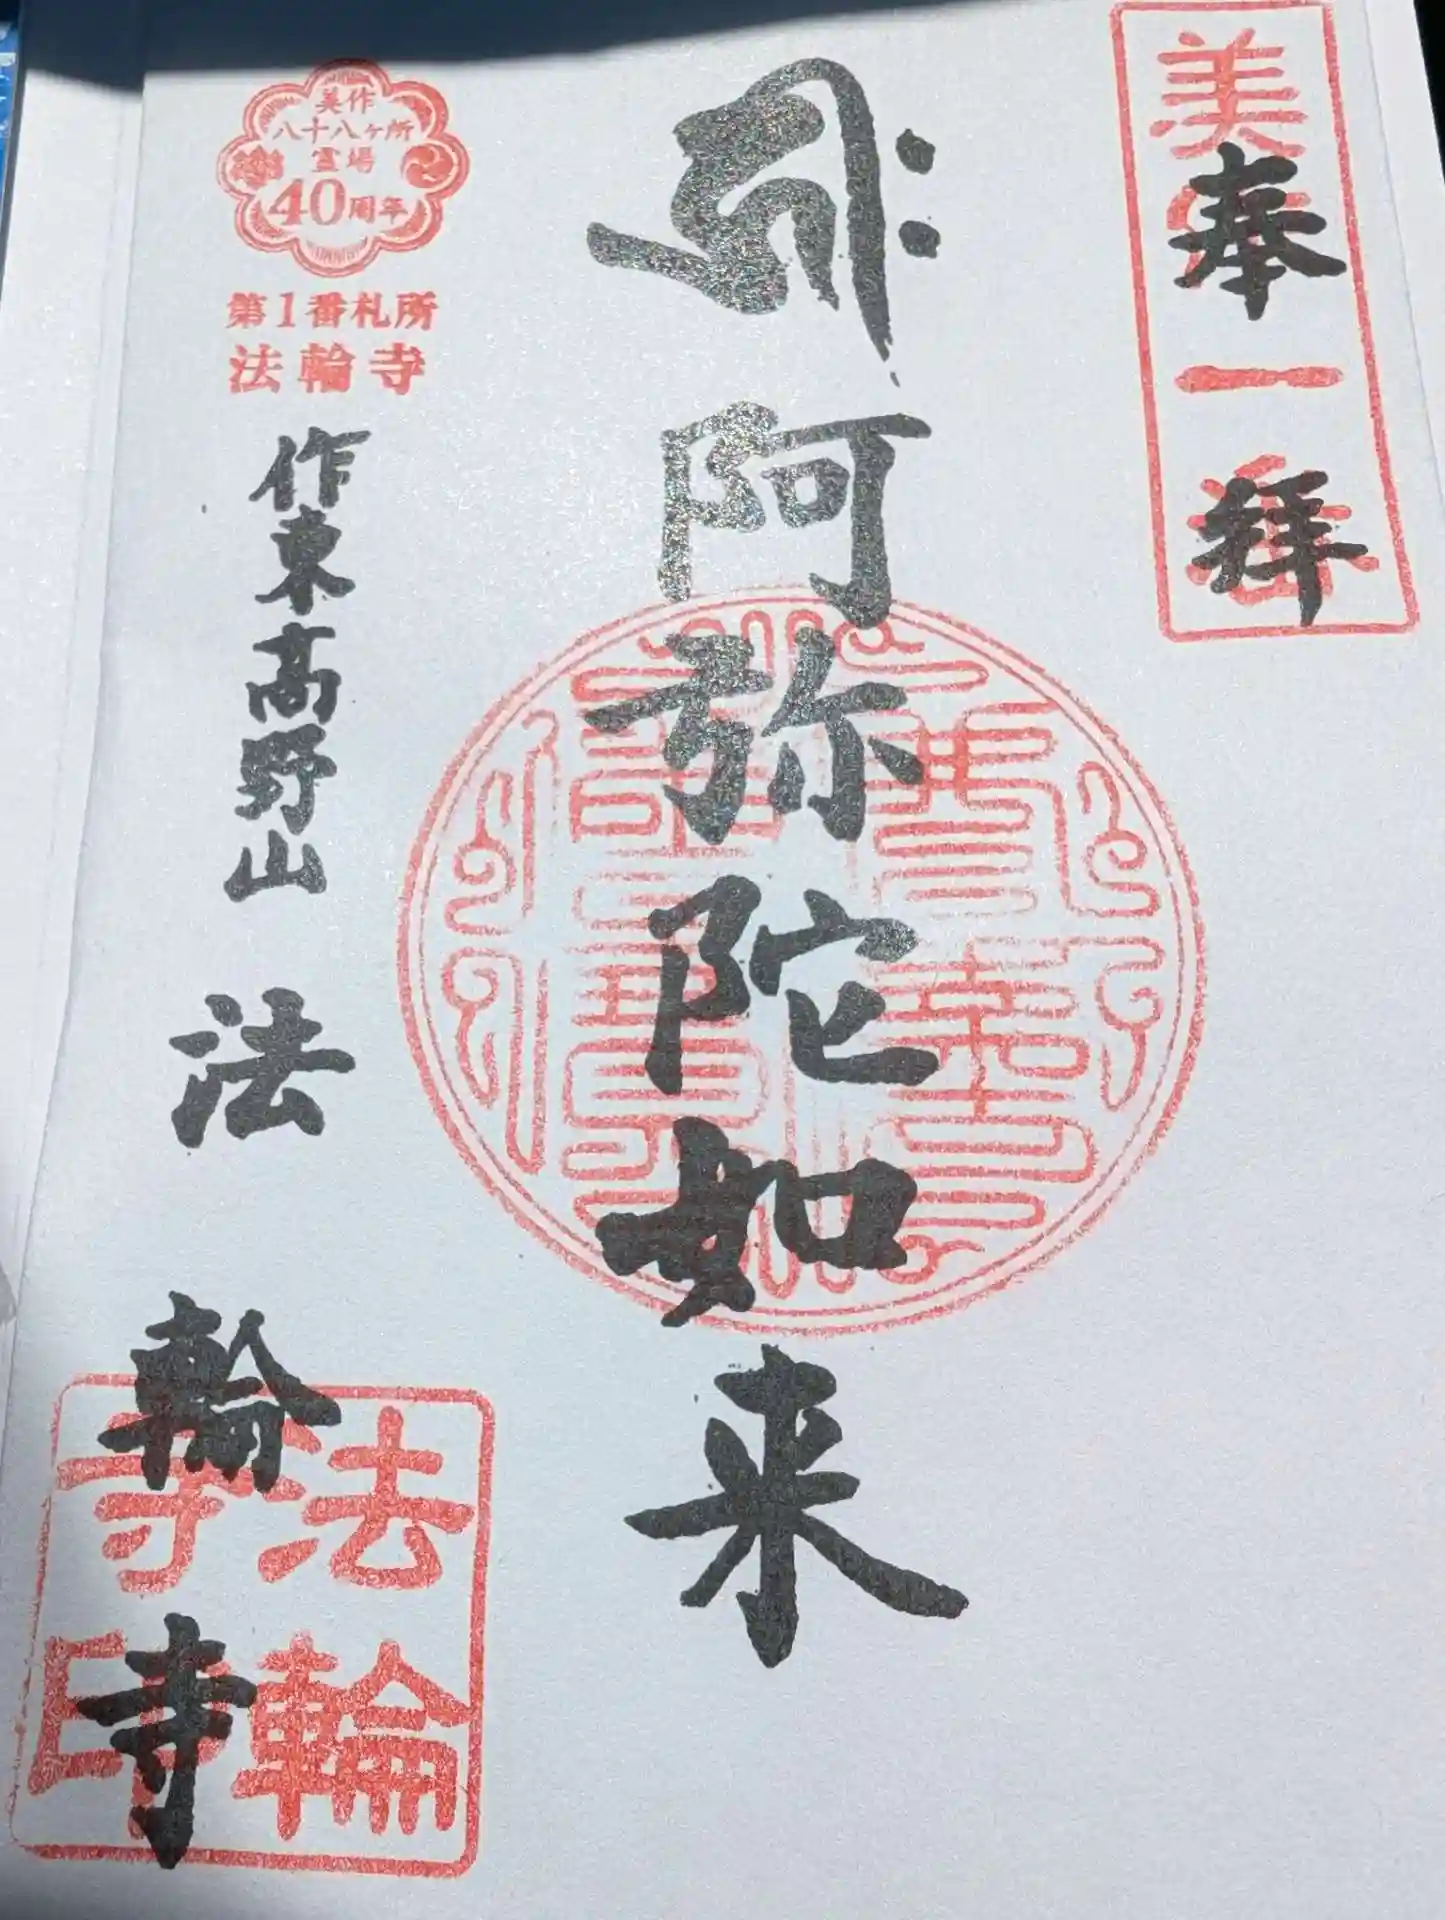 美作一番
奉拝
阿弥陀如来
美作
八十八ヶ所
霊場
40周年
第1番札所
法輪寺
作東高野山 法輪寺
法輪
寺印